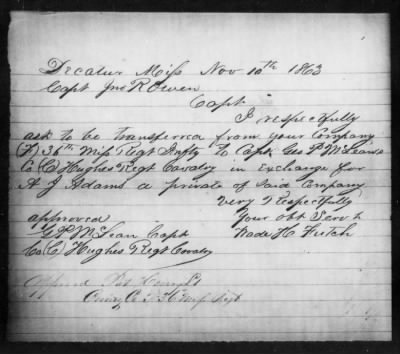 Decatur Miss Nov 10th 1863
Capt Jno R Owen
Capt
I respectfully
ask to be transferred from your Company
(F) 36th Miss Regt Infty to Capt Geo P McLean's
Co (C) Hughes Regt Cavalry in exchange for
A J Adams a private of said Company
Very Respectfully
approved Your obt Servt
G P McLean Capt Wade H
Co (C) Hughes Regt Cavalry
Comg Co F 36 Miss Regt